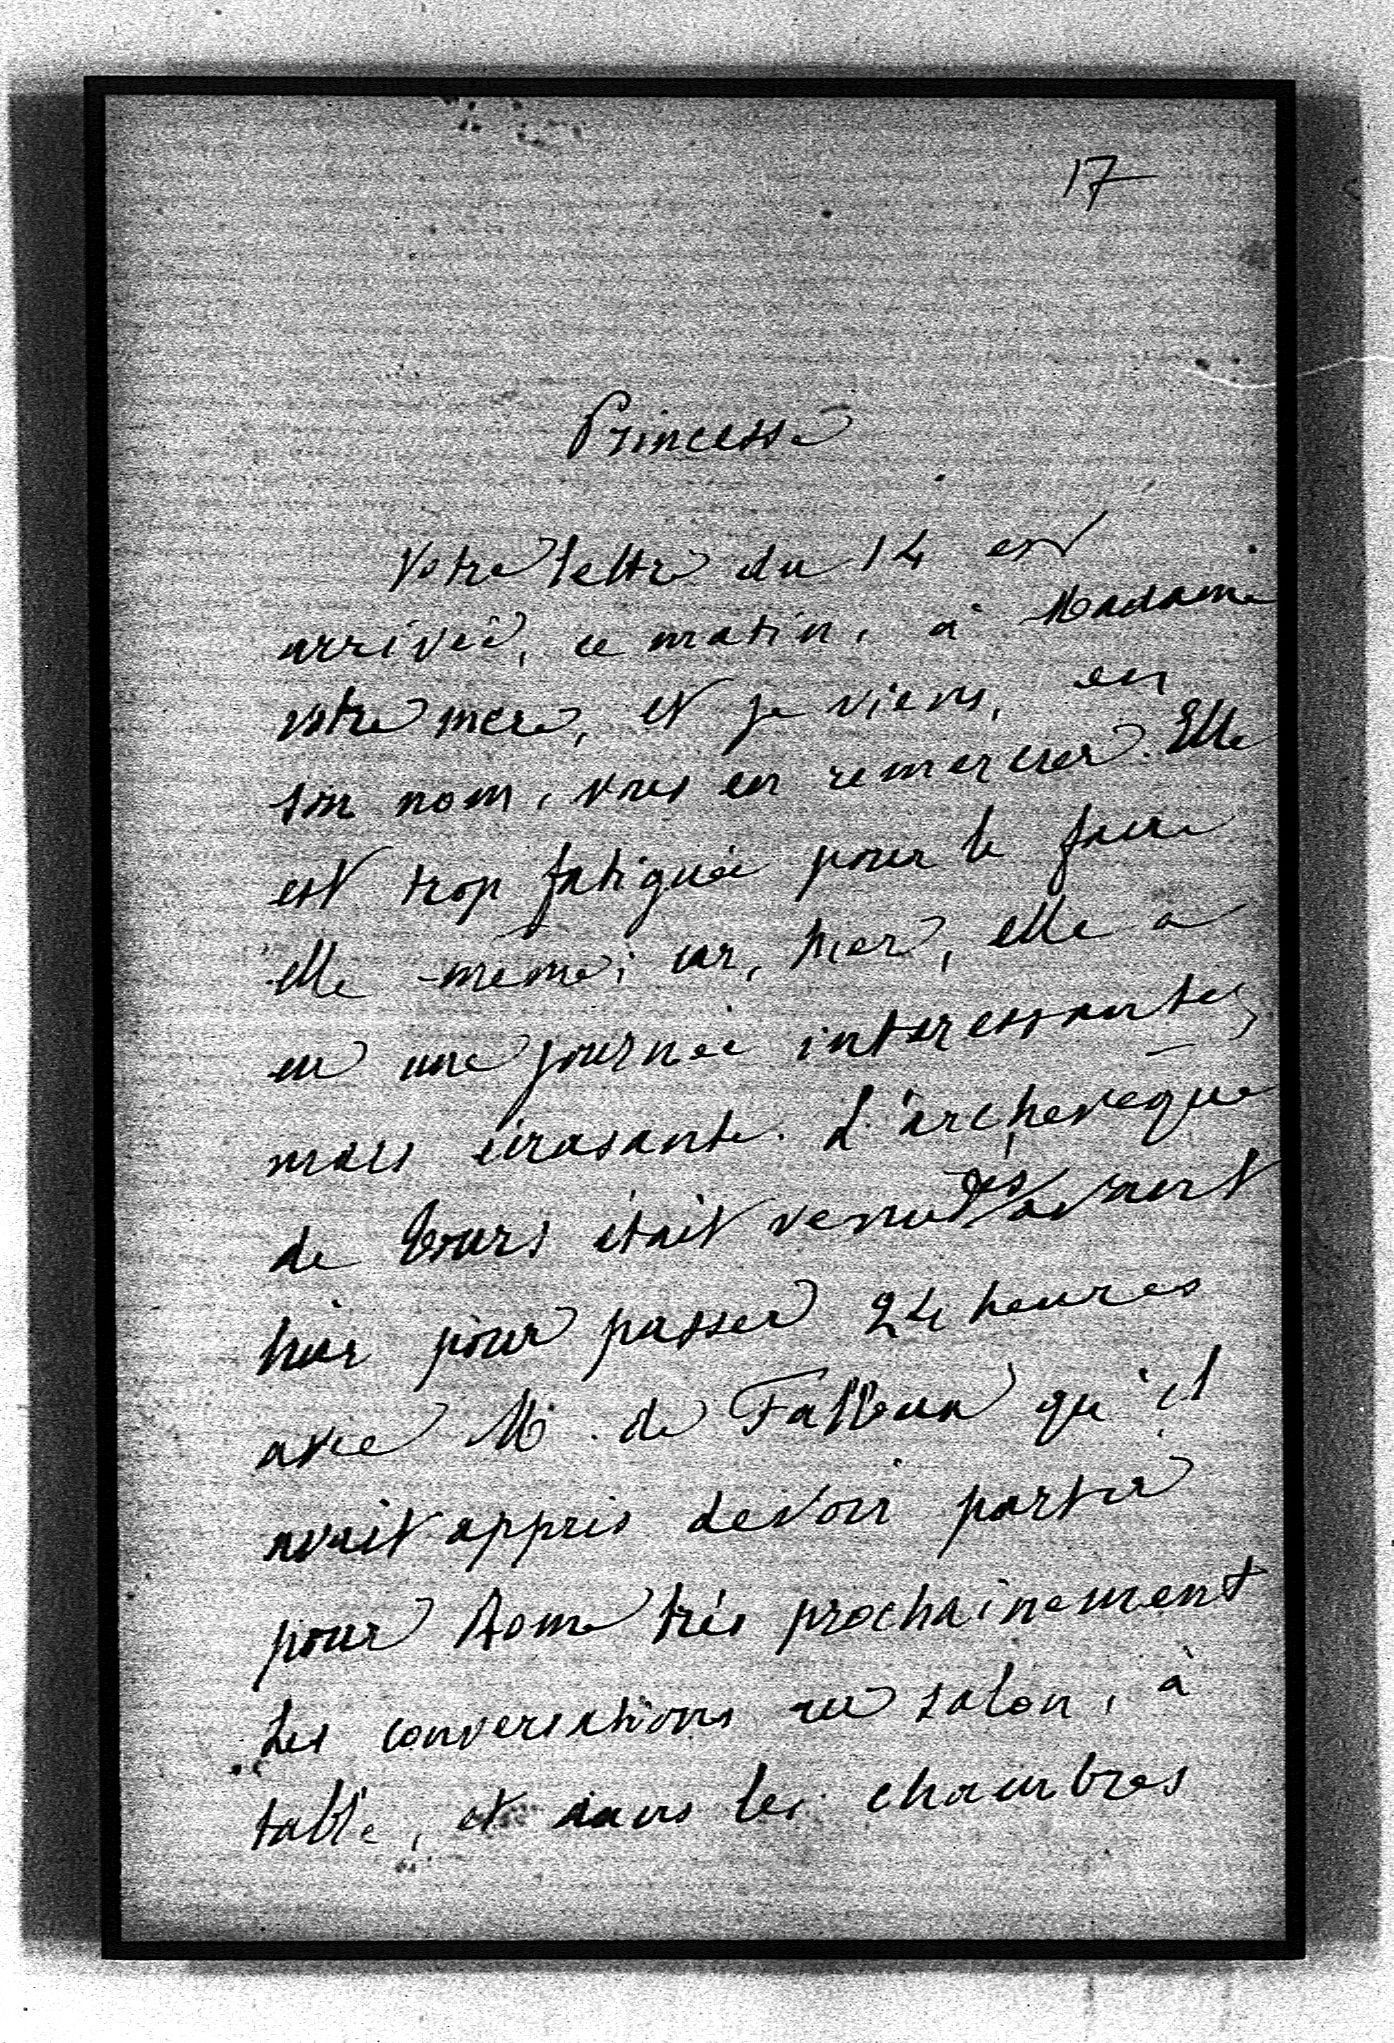 17
Princesse
Votre lettre du 14 est
arrivée, ce matin, à Madame
votre mère, et je viens, en
son nom, vous en remercier. Elle
est trop fatiguée pour le faire
elle-même; car, hier, elle a
eu une journée intéressante,
mais écrasante. L'archevêque
de Tours était venu dès avant
hier pour passer 24 heures
avec M. de Falloux qu'il
avait appris devoir partir
pour Rome très prochainement
Les conversations au salon, à
table, et dans les chambres